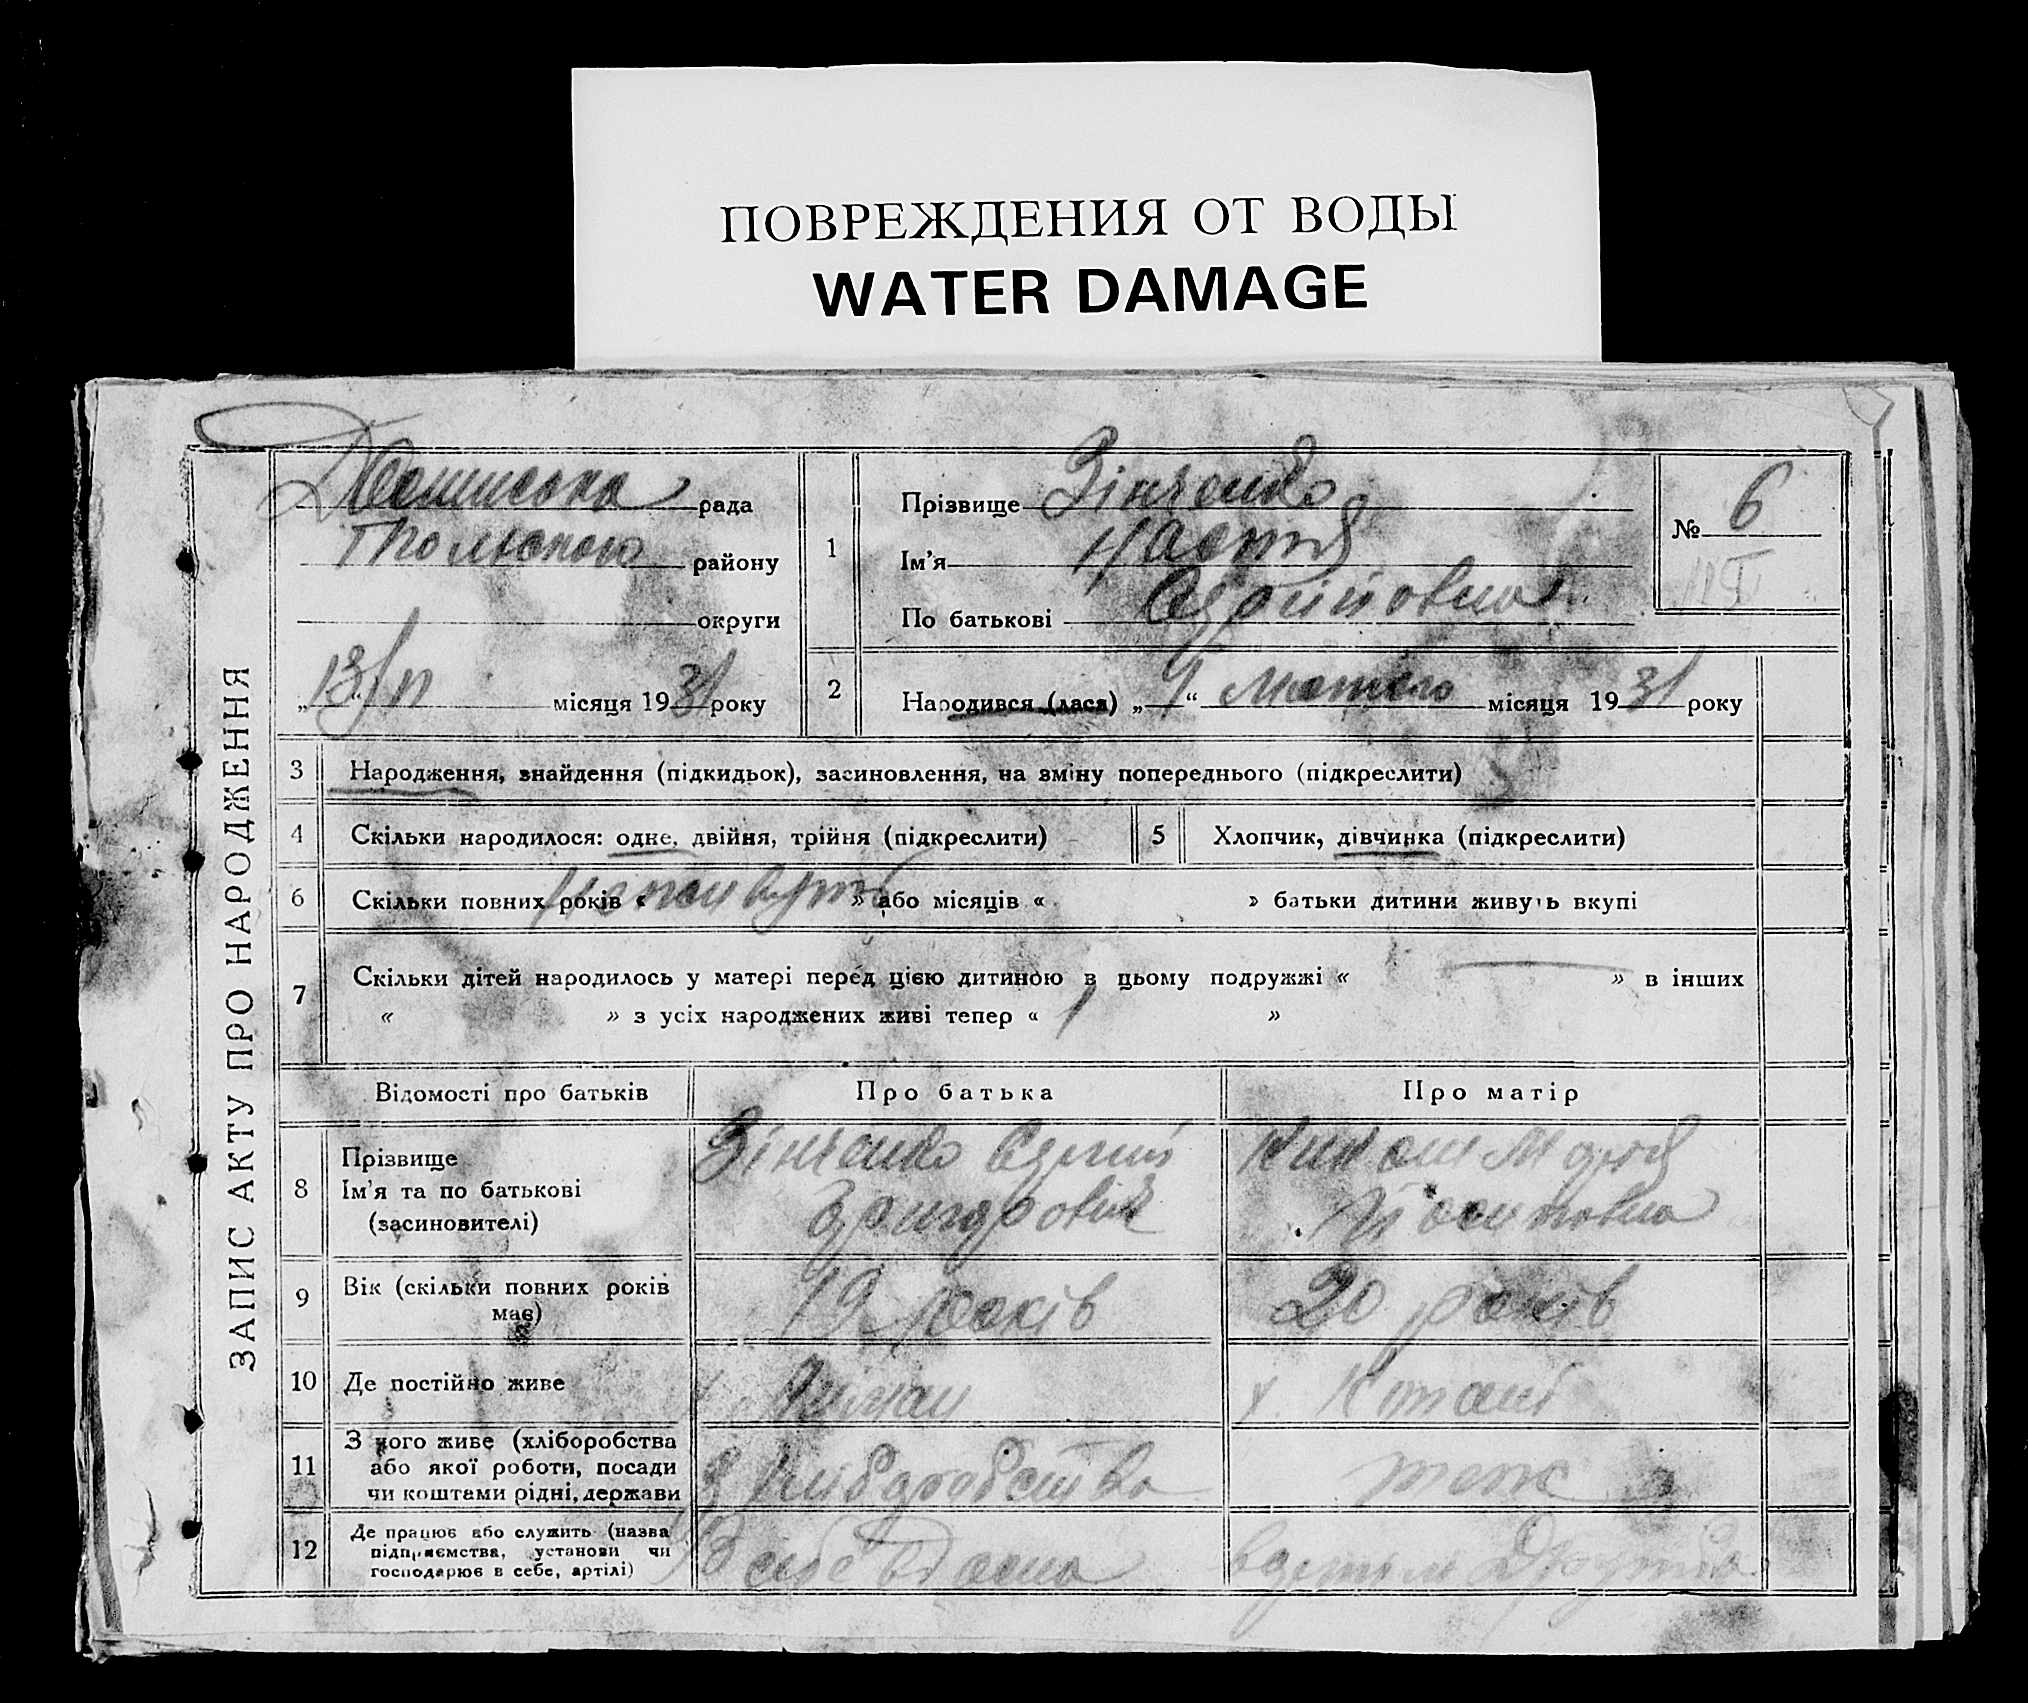 ПОВРЕЖДЕНИЯ ОТ ВОДЫ
WATER DAMAGE
ЗАПИС АКТУ ПРО НАРОДЖЕННЯ
рада
району
округи
13/II місяця 1931 року
1
Прізвище Зінченко
Ім'я Настя
По батькові
№ 6
2 Народився (лася) „ “ лютого місяця 1931 року
3 Народження, знайдення (підкидьок), засиновлення, на зміну попереднього (підкреслити)
4 Скільки народилося: одне, двійня, трійня (підкреслити)
5 Хлопчик, дівчинка (підкреслити)
6 Скільки повних років « » або місяців « » батьки дитини живуть вкупі
7 Скільки дітей народилось у матері перед цією дитиною в цьому подружжі « — » в інших
« » з усіх народжених живі тепер « 1 »
Відомості про батьків
Про батька
Про матір
8 Прізвище
Ім'я та по батькові
(засиновителі)
Зінченко Сергій
Григорович
Марія
Йосиповна
9 Вік (скільки повних років
має)
19 років
20 років
10 Де постійно живе
11 З чого живе (хліборобства
або якої роботи, посади
чи коштами рідні, держави
З хліборобства
теж
12 Де працює або служить (назва
підприємства, установи чи
господарює в себе, артілі)
В себе